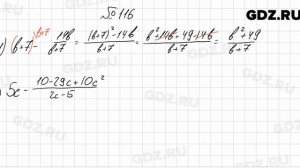 GDZ.RU
№ 116
1) (b+7)^{b+7} - 14b/(b+7) = ((b+7)² - 14b)/(b+7) = (b² + 14b + 49 - 14b)/(b+7) = (b² + 49)/(b+7)
) 5c - (10 - 29c + 10c²)/(2c - 5)
GDZ.RU